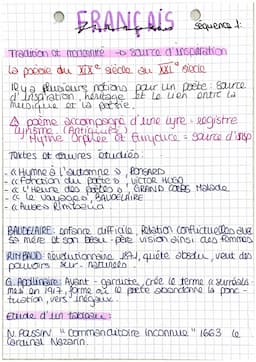 FRANÇAIS
séquence 1:
Tradition et modernité → source d'inspiration
La poésie du XIXe siècle au XXIe siècle
Il y a plusieurs notions pour un poète : source
d'inspiration, héritage et le lien entre la
musique et la poésie.
⚠ poème accompagné d'une lyre → registre
lyrisme. (Antiquité)
Mythe Orphée et Eurydice = source d'insp
Textes et œuvres étudiés:
- « Hymne à l'automne », RONSARD
- « Fonction du poète », VICTOR HUGO
- « L'Heure des poètes », GRAND CORPS Malade
- « Le voyage », BAUDELAIRE
- « Aube » Rimbaud
BAUDELAIRE: enfance difficile, Relation conflictuelles avec
sa mère et son beau-père vision ainsi des femmes
RIMBAUD: révolutionnaire 1871, quête absolu, veut des
pouvoirs sur-naturelles.
G. Apollinaire: Avant-gardiste, crée le terme « surréalis-
me » en 1917, forme où le poète abandonne la ponc-
tuation, vers inégaux.
Etude d'un tableau:
N. Poussin "commanditaire inconnue" 1663 le
Cardinal Mazarin.